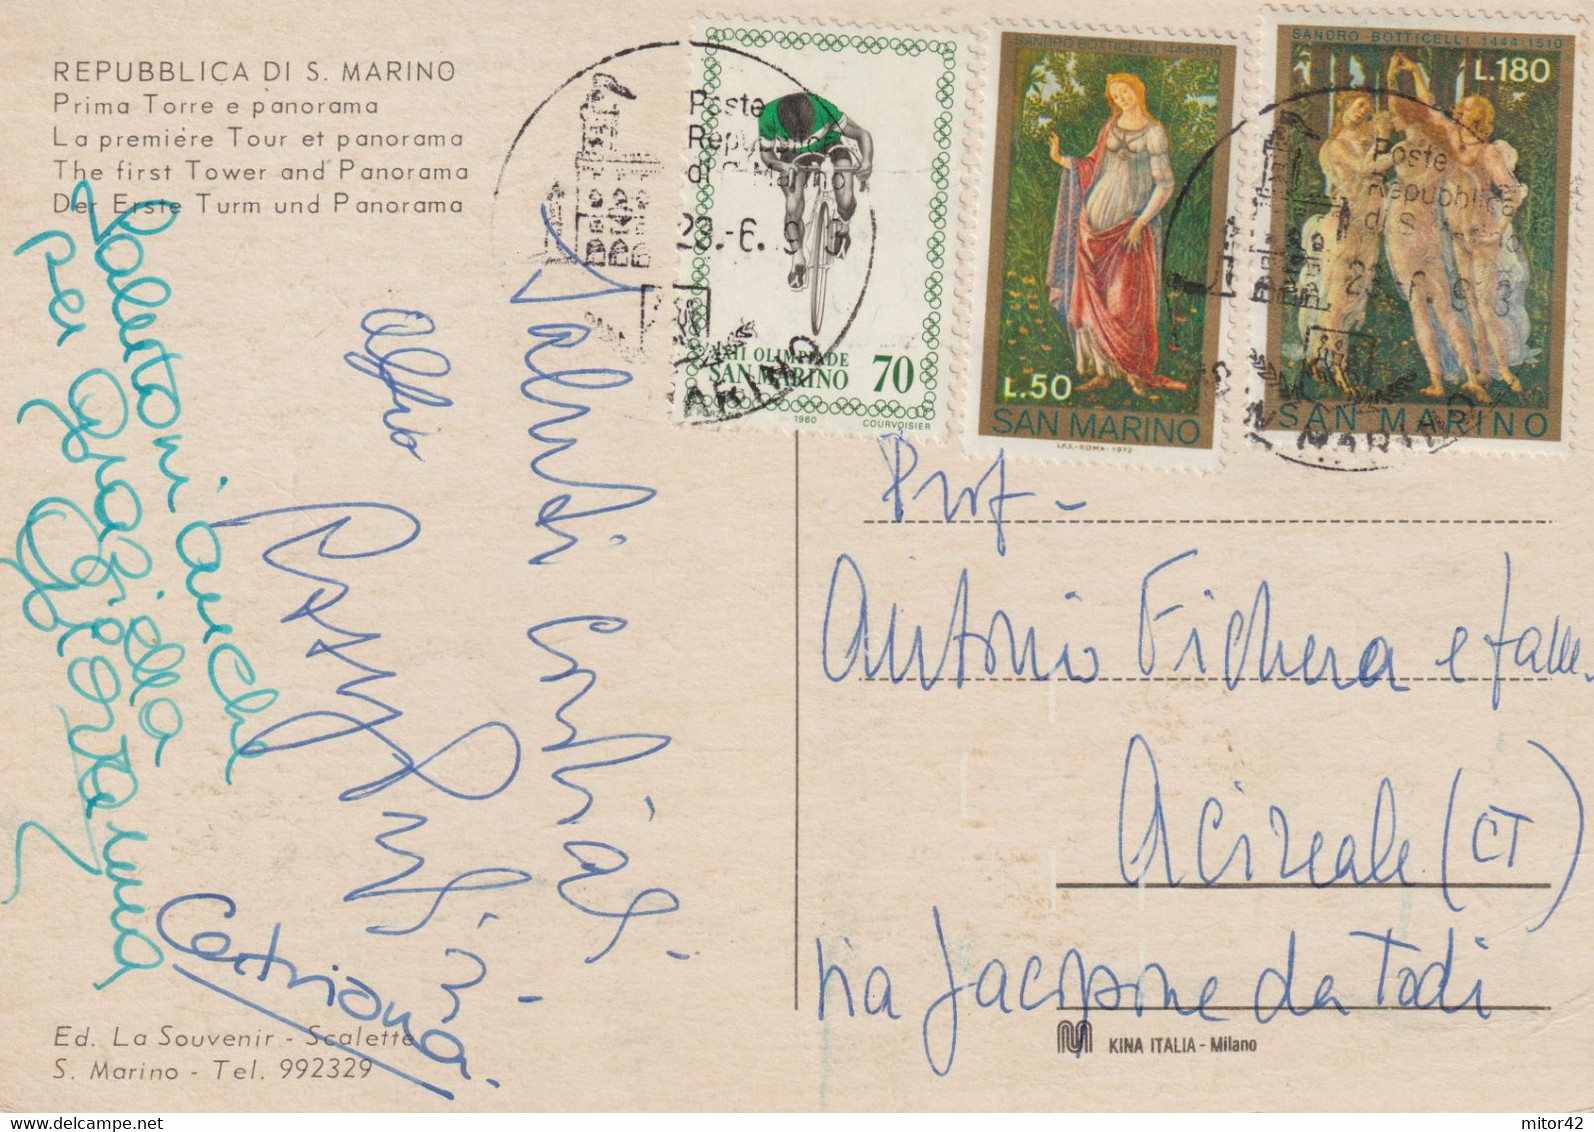 REPUBBLICA DI S. MARINO
Prima Torre e panorama
La première Tour et panorama
The first Tower and Panorama
Der Erste Turm und Panorama
XXII OLIMPIADE
SAN MARINO 70
1980 COURVOISIER
SANDRO BOTTICELLI 1444-1510
L.50
SAN MARINO
I.P.S.-ROMA-1972
SANDRO BOTTICELLI 1444-1510
L.180
SAN MARINO
Poste
Repubblica
di S. Marino
Poste
Repubblica
di S. Marino
Saluti cordiali
Alfio
anche
per Graziella
Prof-
Antonio Fichera e fam.
Acireale (CT)
Via Jacopone da Todi
Ed. La Souvenir - Scalette
S. Marino - Tel. 992329
KINA ITALIA - Milano
www.delcampe.net
mitor42